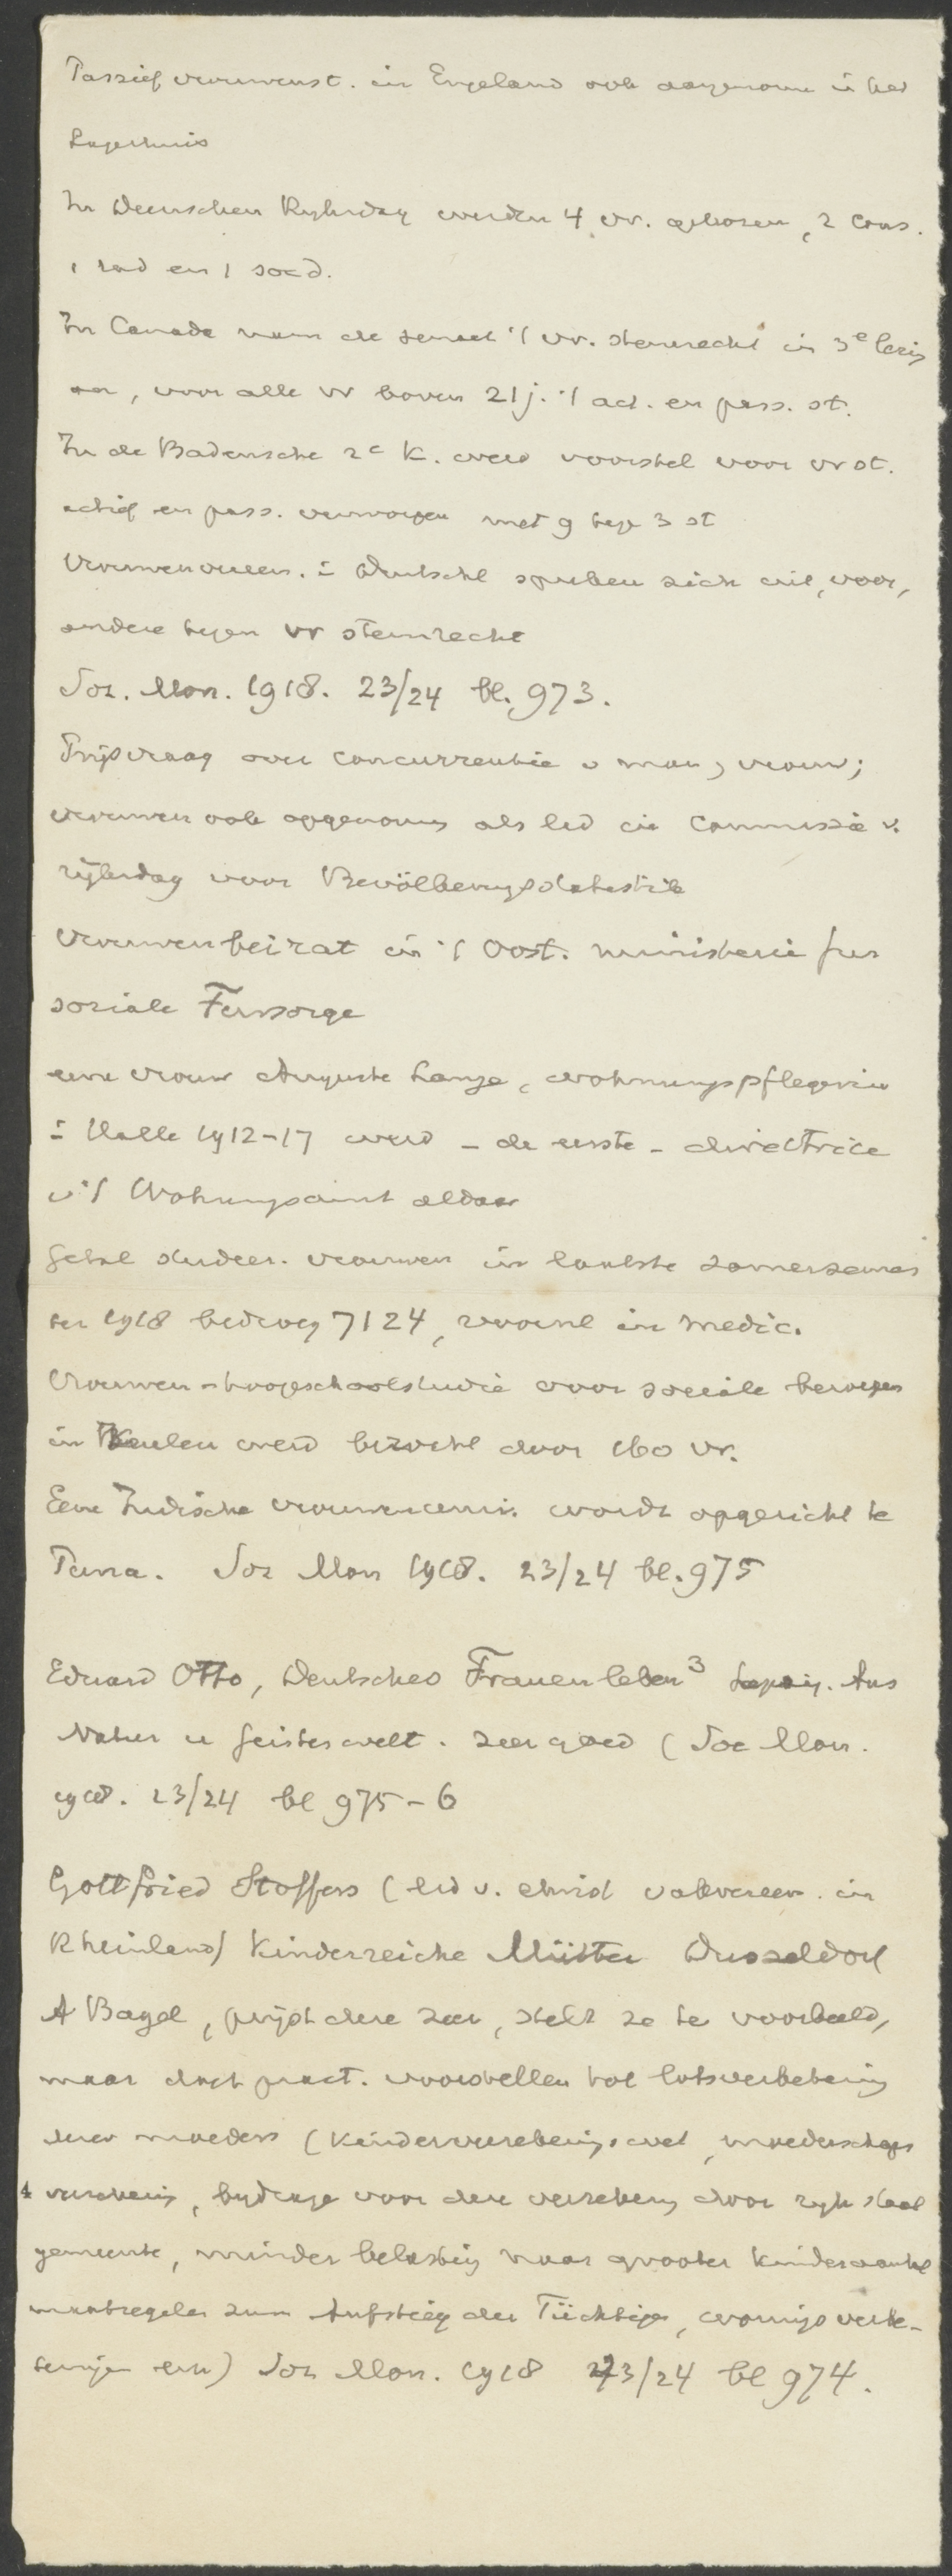 Passief vrouwenst. in Engeland ook aangenomen in het
Lagerhuis
In Deenschen Rijksdag werden 4 vr. gekozen, 2 cons.
1 rad en 1 socd.
In Canada nam de senaat 't vr. stemrecht in 3e lezing
aan, voor alle vr boven 21 j. 't act. en pass. st.
In de Badensche 2e K. werd voorstel voor vr st.
actief en pass. verworpen met 9 tege 3 st
Vrouwenvereen. i Duitschl spreken zich uit, voor,
andere tegen vr stemrecht
Soz. Mon. 1918. 23/24 bl. 973.
Prijsvraag over concurrentie v man, vrouw;
vrouwen ook opgenomen als lid in commissie v.
rijksdag voor Bevölkerungsstatistik
Vrouwenbeirat in 't Oost. ministerie für
soziale Fürsorge
eene vrouw Auguste Lange, wohnungspflegerin
i Halle 1912-17 werd - de eerste - directrice
v 't Wohnungsamt aldaar
Getal studeer. vrouwen in laatste zomersemes
ter 1918 bedroeg 7124, vooral in medic.
Vrouwen-hoogeschoolstudie voor sociale beroepen
in Keulen werd bezocht door 160 vr.
Eene Indische vrouwenuniv. wordt opgericht te
Puna. Soz Mon 1918. 23/24 bl. 975
Eduard Otto, Deutsches Frauenleben3 Leipzig. Aus
Natur u Geisteswelt. zeer goed (Soz Mon.
1918. 23/24 bl 975-6
Gottfried Stoffers (lid v. christ vakvereen. in
Rheinland) Kinderreiche Mütter Dusseldorf
A Bagel, prijst deze zeer, stelt ze ten voorbeeld,
maar doet pract. voorstellen tot lotsverbetering
dezer moeders (kinderverzekerings wet, moederschaps
verzekering, bijdrage voor deze verzekering door rijk staat
gemeente, minder belasting naar grooter kinderaantal
maatregelen zum Aufstieg der Tüchtigen, woningsverbe-
teringen enz) Soz Mon. 1918 23/24 bl 974.